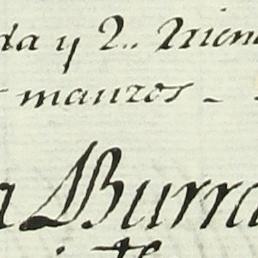 da y 2.. Trien
manzos -
a Burra